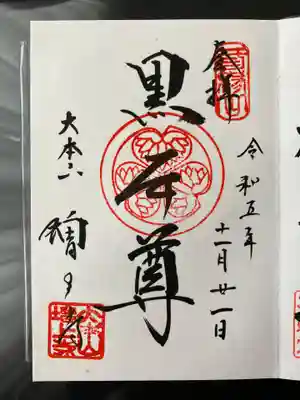 奉拝
令和五年
十一月廿一日
黒本尊
大本山
増上寺